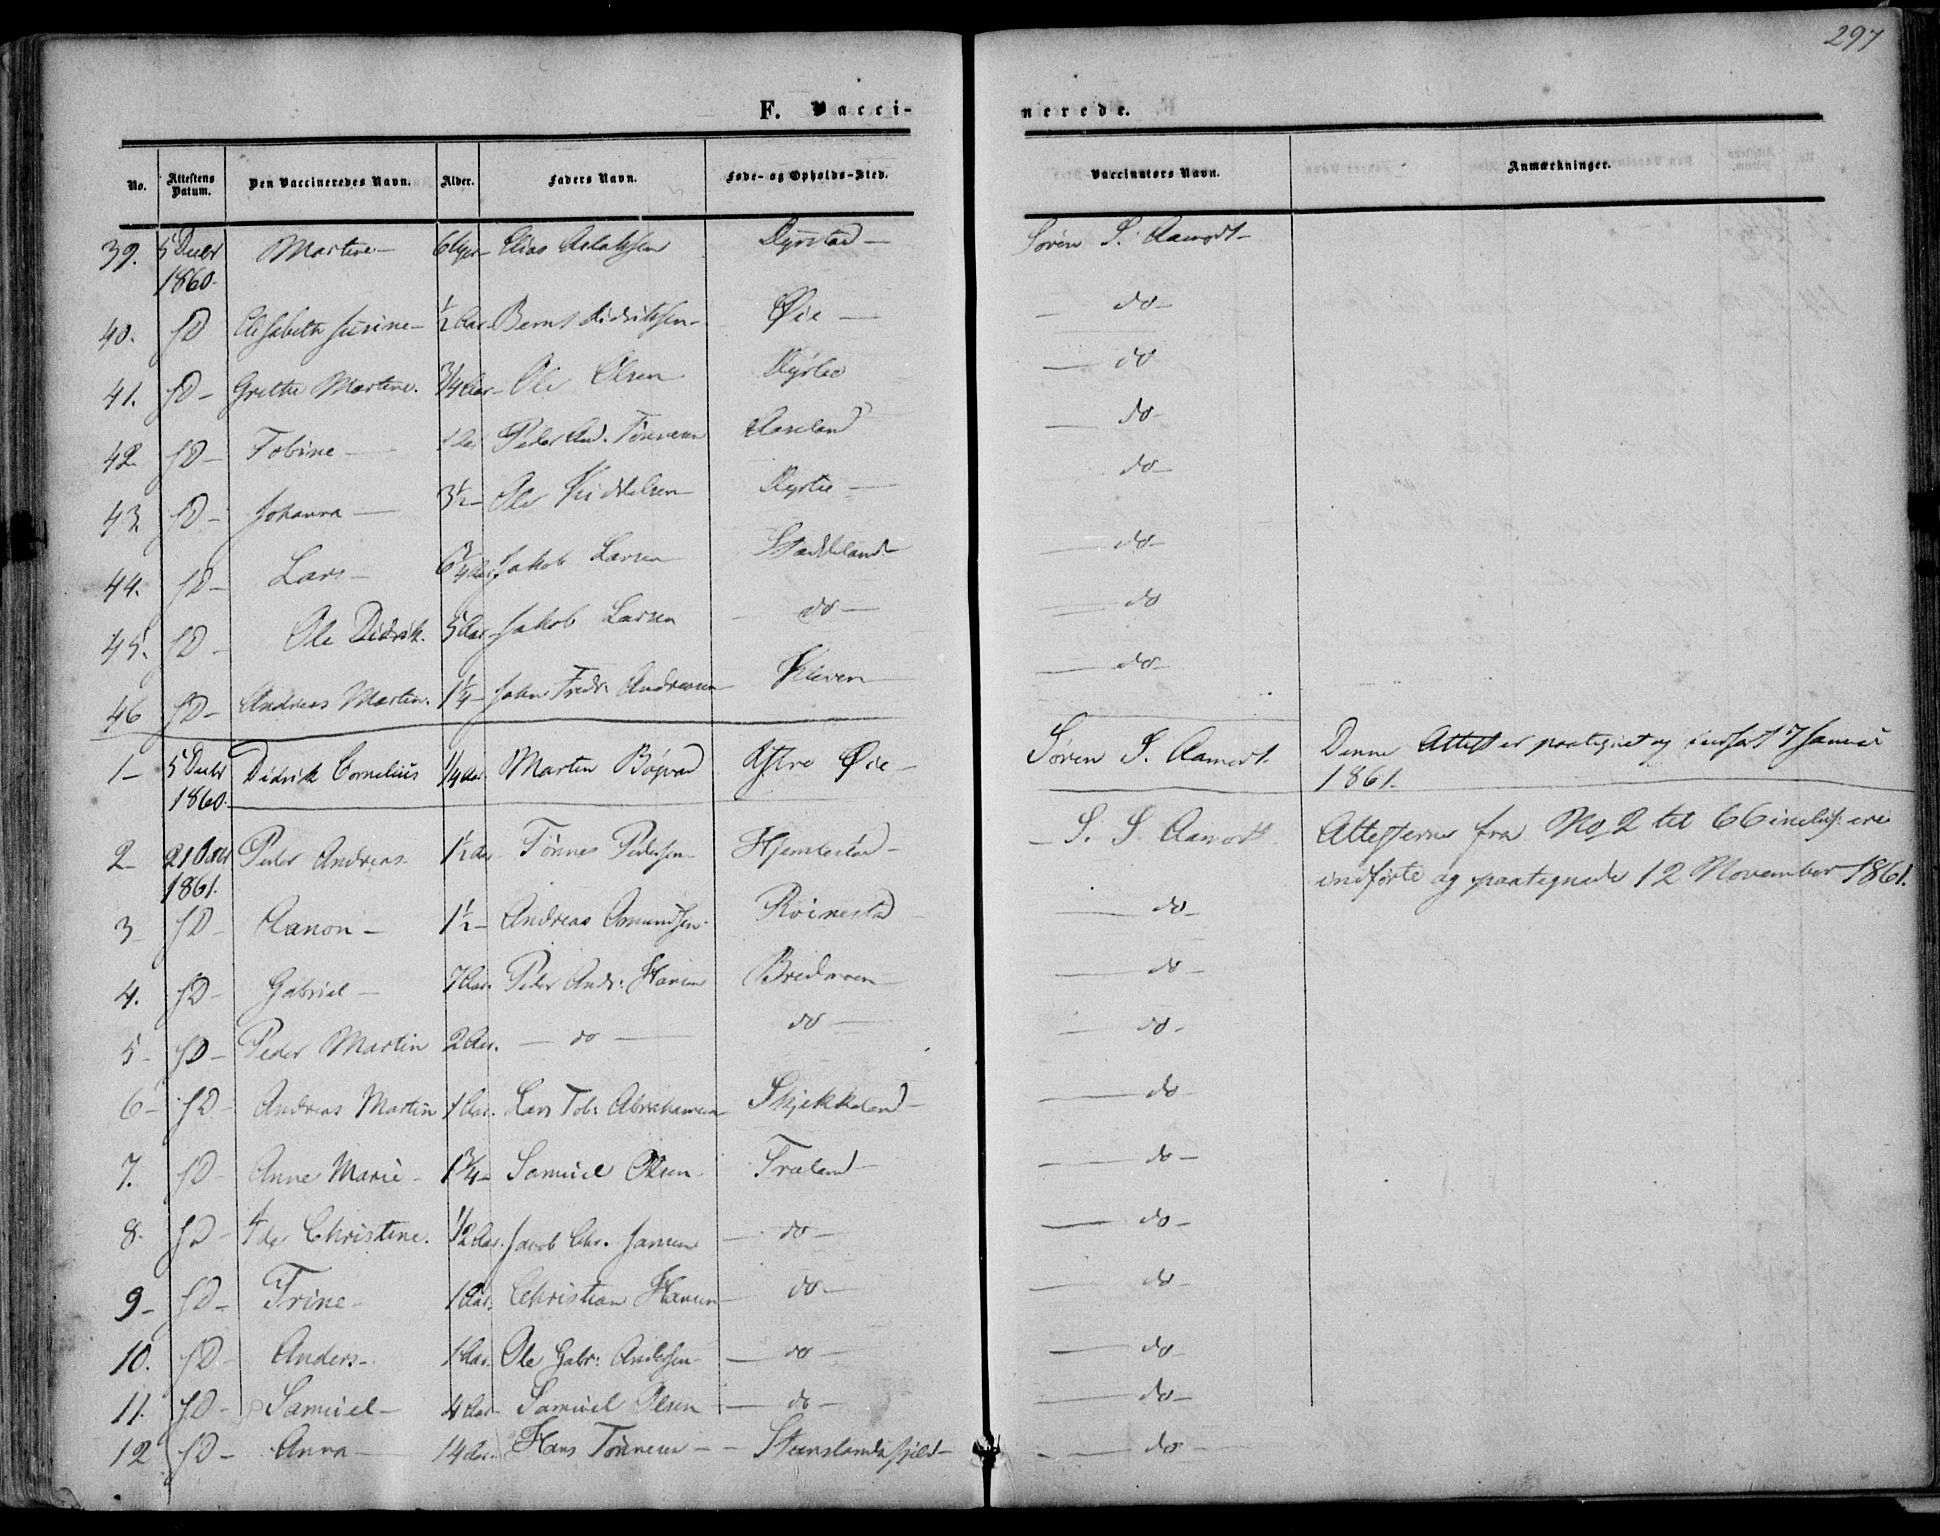 297
F. Vacci-nerede.
No. Attestens Datum. Den Vaccineredes Navn. Alder. Faders Navn. Føde- og Opholds-Sted. Vaccinators Navn. Anmærkninger.
39. 5 Decbr 1860. Martine Elias Aslaksen Søren S. Aamodt
40. sD Elisabeth Susine ½ Aar Bernt Didriksen Øie do
41. sD Grethe Martine. ¾ Aar Ole Olsen do
42. sD Tobine 1 Aar Peder And. Tønnesen Aaseland do
43. sD Johanna 3½ Ole do
44. sD Lars 6¾ Aar Jakob Larsen do
45. sD Ole Didrik. 5 Aar Jakob Larsen do do
46 sD Andreas Martin. 1¼ John Fredr. Andreasen do
1 5 Decbr 1860. Didrik Cornelius ¼ Aar Martin Øie Søren S. Aamodt. Denne Attest er paategnet og indført 7 Januar
1861.
2 21 1861. Peder Andreas 1½ Aar Tønnes Pedersen S. S. Aamodt Attesterne fra No 2 til 66 inclus. ere
indførte og paategnede 12 November 1861.
3 sD Aanon 1½ Andreas Amundsen Röinestad do
4. sD Gabriel 7 Aar. Peder Andr. Hansen do
5 sD Peder Martin 2 Aar. do do do
6 sD Andreas Martin 1 Aar. Lars Tob. Abrahamsen Skjekkeland do
7. sD Anne Marie 1¾ Samuel Olsen Træland do
8. sD Christine. ½ Aar. Jacob Chr. Jansen do do
9 sD Trine 1 Aar. Christian Hansen do do
10. sD Anders 1 Aar. Ole Gabr. Andersen do do
11. sD Samuel 4 Aar Samuel Olsen do do
12 sD Anna 14 Aar Hans Tønnesen do